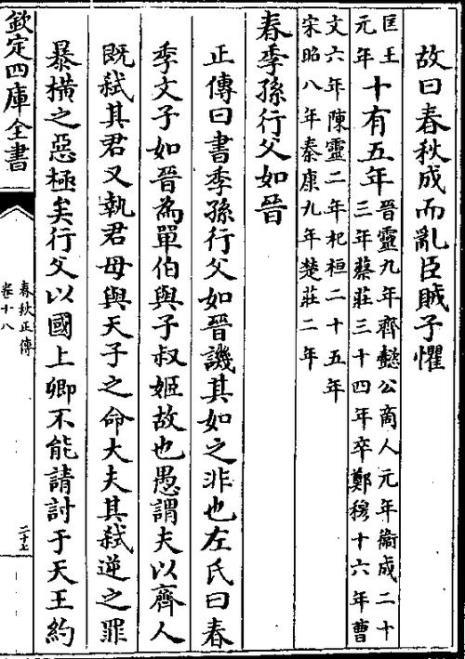 故曰春秋成而亂臣賊子懼
匡王元年十有五年晉靈九年齊懿公商人元年衞成二十三年蔡莊三十四年卒鄭穆十六年曹
文六年陳靈二年杞桓二十五年宋昭八年秦康九年楚莊二年
春季孫行父如晉
正傳曰書季孫行父如晉譏其如之非也左氏曰春
季文子如晉為單伯與子叔姬故也愚謂夫以齊人
既弑其君又執君母與天子之命大夫其弑逆之罪
暴橫之惡極矣行父以國上卿不能請討于天王約
欽定四庫全書
春秋正傳
卷十八
二十七